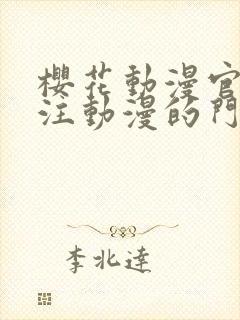 櫻花動漫官
注動漫的門
李北達